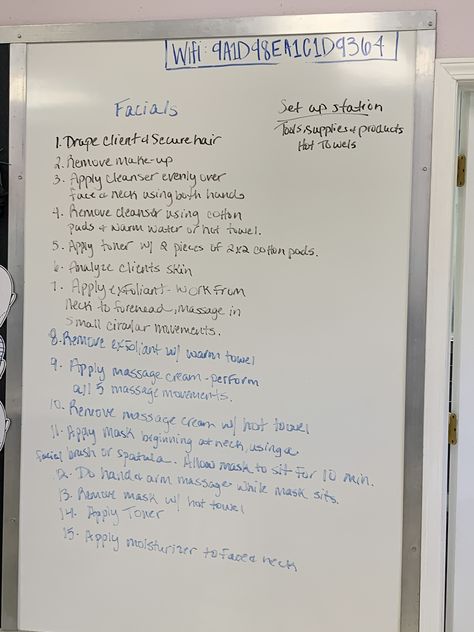 Wifi: 9A1D48EA1C1D9364
Facials
Set up station
Tools, supplies & products
Hot Towels
1. Drape client & Secure hair
2. Remove make-up
3. Apply cleanser evenly over
face & neck using both hands
4. Remove cleanser using cotton
pads & warm water or hot towel.
5. Apply toner w/ 2 pieces of 2x2 cotton pads.
6. Analyze clients skin
7. Apply exfoliant - work from
neck to forehead, massage in
small circular movements.
8. Remove exfoliant w/ warm towel
9. Apply massage cream - perform
all 5 massage movements.
10. Remove massage cream w/ hot towel
11. Apply mask beginning at neck, using a
facial brush or spatula. Allow mask to sit for 10 min.
12. Do hand & arm massage while mask sits.
13. Remove mask w/ hot towel
14. Apply Toner
15. Apply moisturizer to face & neck